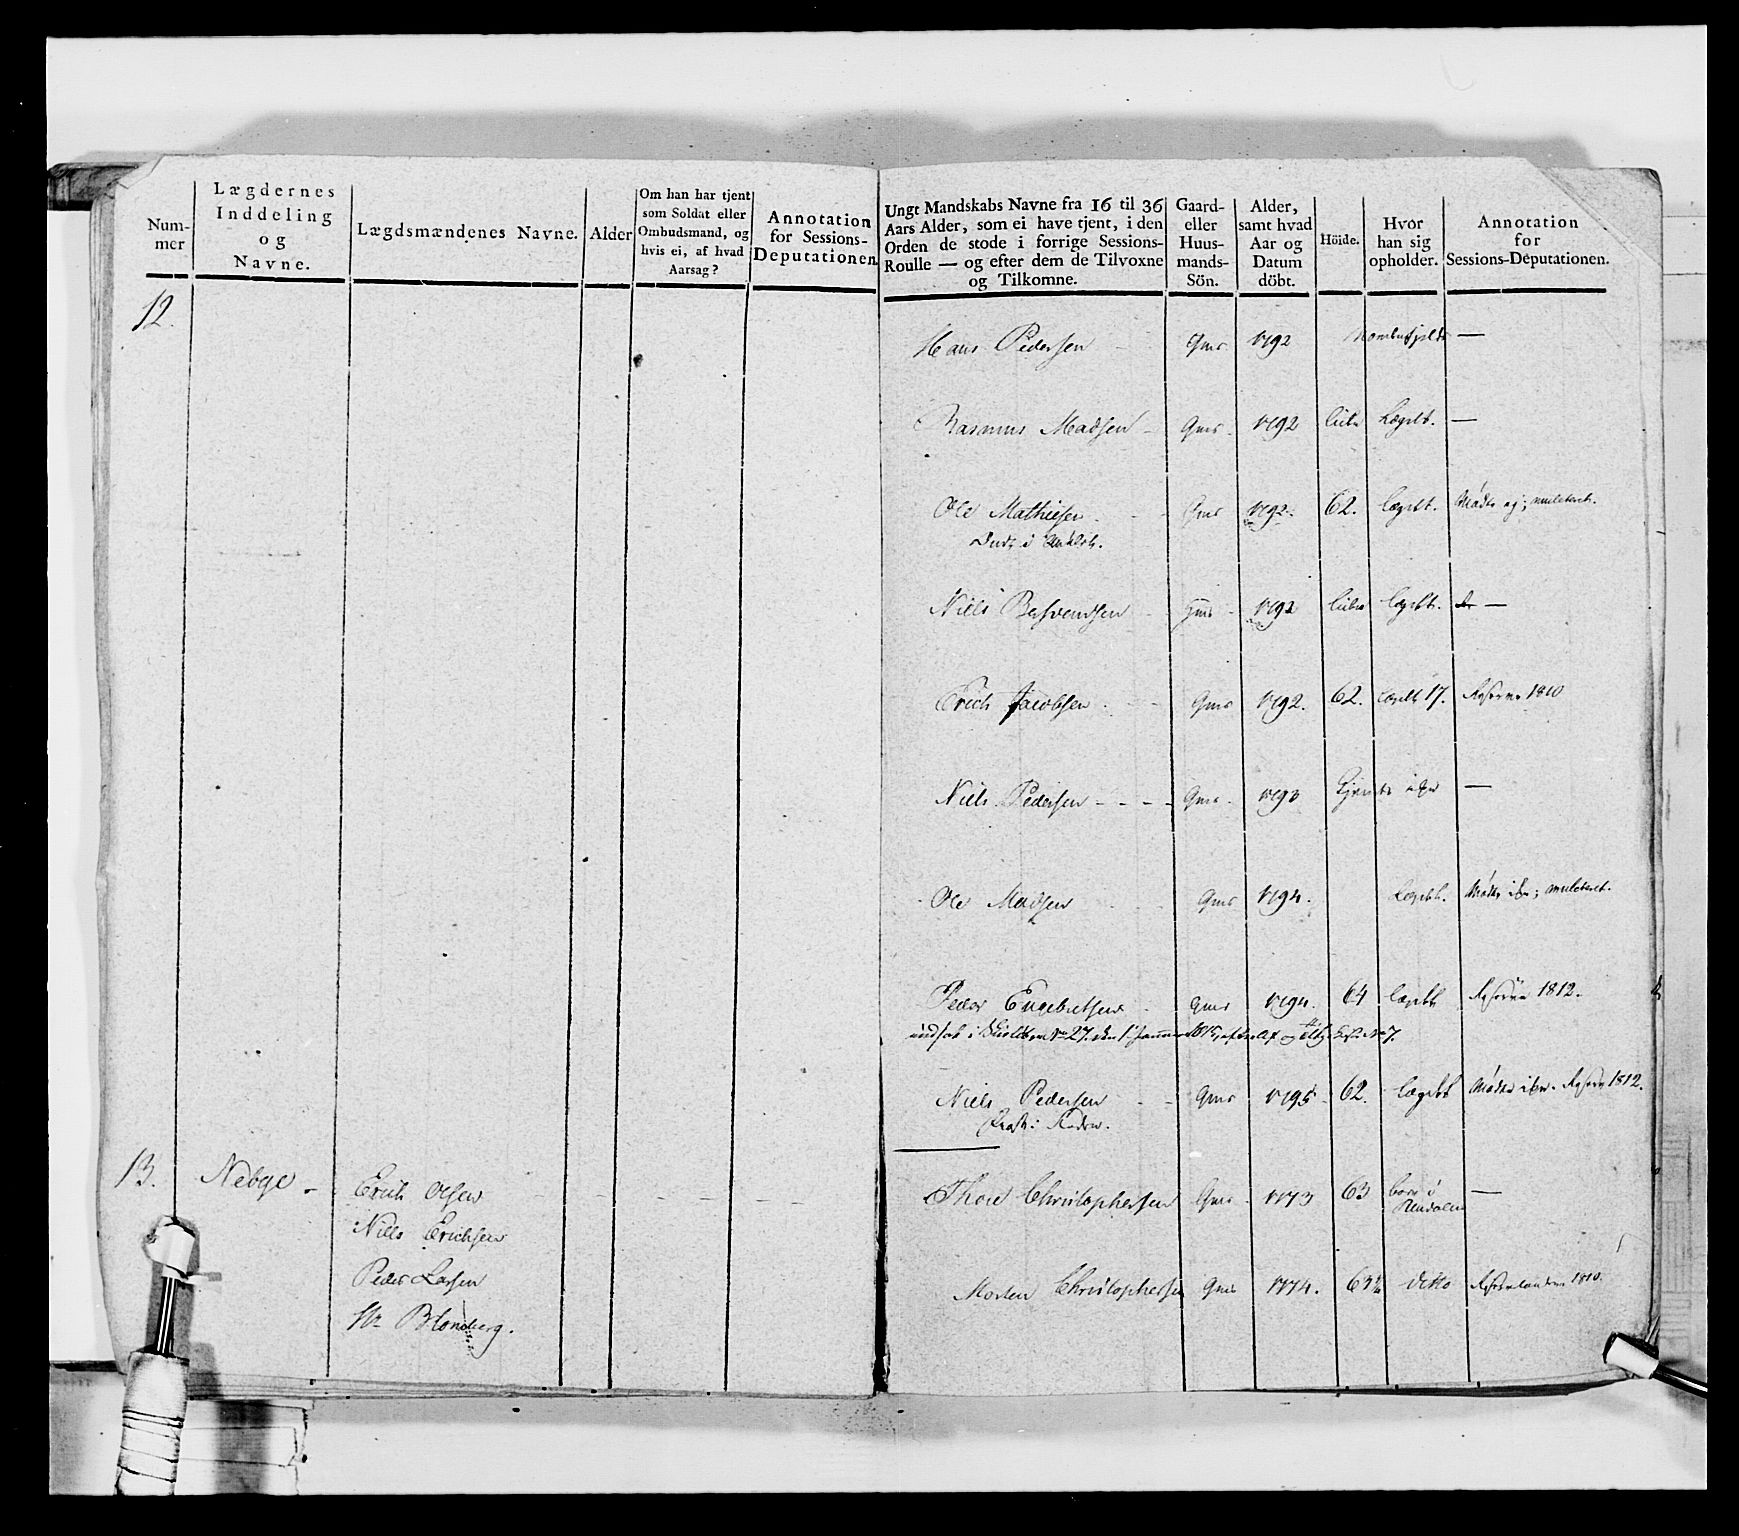 Num-
mer
Lægdernes
Inddeling
og
Navne.
Lægdsmændenes Navne.
Alder
Om han har tjent
som Soldat eller
Ombudsmand, og
hvis ei, af hvad
Aarsag?
Annotation
for Sessions-
Deputationen.
Ungt Mandskabs Navne fra 16 til 36
Aars Alder, som ei have tjent, i den
Orden de stode i forrige Sessions-
Roulle — og efter dem de Tilvoxne
og Tilkomne.
Gaard-
eller
Huus-
mands-
Sön.
Alder,
samt hvad
Aar og
Datum
döbt.
Höide.
Hvor
han sig
opholder.
Annotation
for
Sessions-Deputationen.
12.
Hans Pedersen Gms 1792 —
Rasmus Madsen Gms. 1792 Lægdt. —
Ole Mathiesen Gms 1792. 62. Lægdt. Mödte ej; mulcteret.
Niels Gms 1792 Lægdt. do —
Erich Jacobsen Gms 1792. 62. Lægdt 17. Reserve 1810
Niels Pedersen Gms. 1793 —
Ole Madsen Gms 1794. Lægdt. Mödte ikke; mulcteret.
Peder Engebretsen Gms 1794. 64 Lægdt Reserve 1812.
No 27. den 1 No 7.
Niels Pedersen Gms 1795 62. Lægdt Mödte ikke. Reserve 1812.
13. Nebye Erich Olsen
Niels Erichsen
Peder Larsen
Hr Blomberg.
Thore Christophersen Gms 1773 63 bor i
Rendalen —
Morten Christophersen Gms 1774. 63½ ditto 1810.